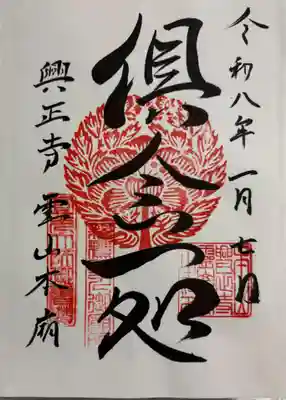 令和八年一月七日
倶会一処
興正寺 霊山本廟